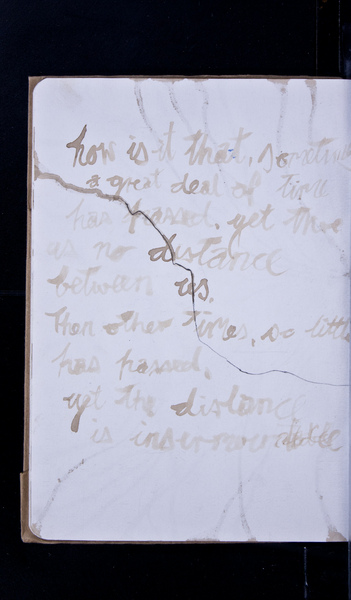 how is it that, sometim
a great deal of time
has passed, yet there
is no distance
between us.
Then other times, so little
has passed,
yet the distance
is insurmountable